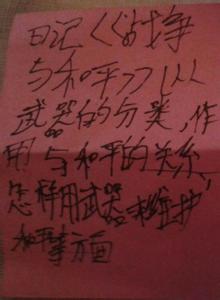 日记《战争
与和平》从
武器的分类,作
用与和平的关系、
怎样用武器来维护
和平等方面